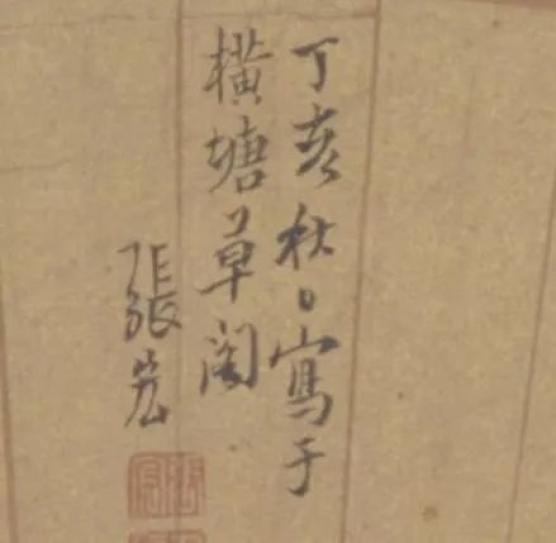 丁亥秋日寫于
橫塘草閣
張宏